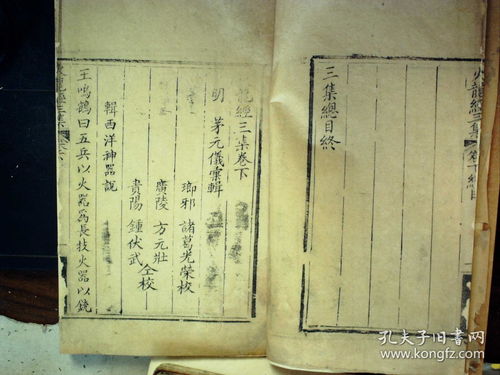 火龍經三集 卷下總目
三集總目終
龍經三集卷下
明 茅元儀彙輯
瑯邪 諸葛光榮校
廣陵 方元壯
貴陽 鍾伏武 仝校
輯西洋神器說
王鳴鶴曰五兵以火器為長技火器以銃
龍經三集
孔夫子旧书网
www.kongfz.com